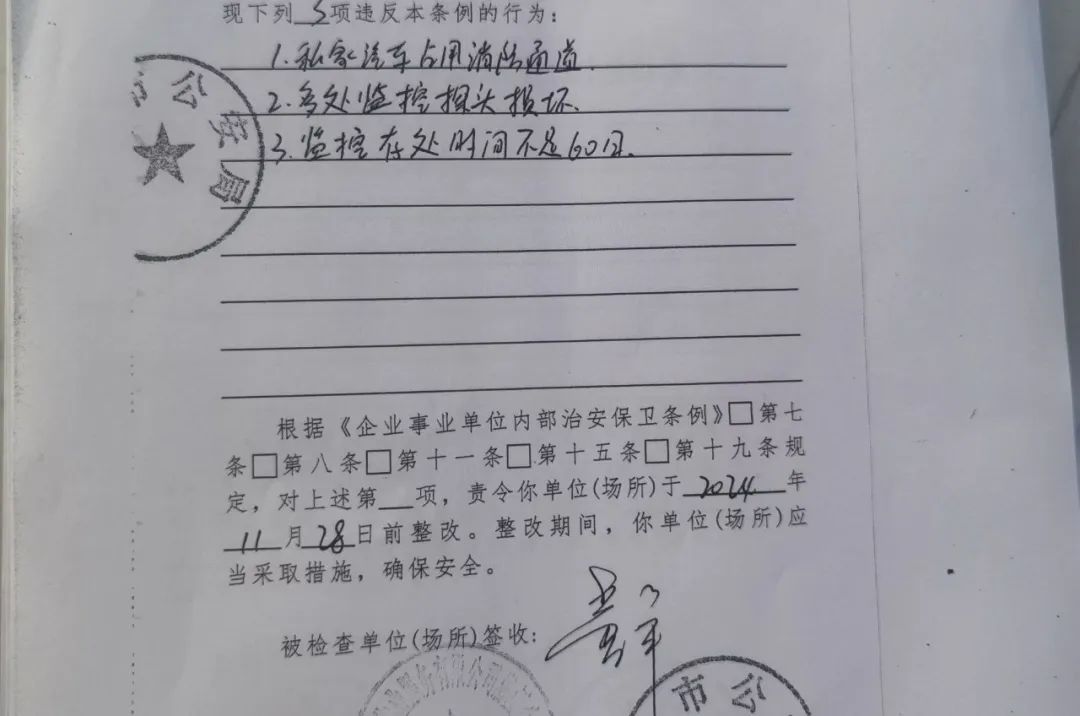 现下列 3 项违反本条例的行为：
1.私家汽车占用消防通道.
2.多处监控探头损坏.
3.监控存处时间不足60日.
市公安局
根据《企业事业单位内部治安保卫条例》□第七
条□第八条□第十一条□第十五条□第十九条规
定，对上述第__项，责令你单位(场所)于 2024 年
11 月 28 日前整改。整改期间，你单位(场所)应
当采取措施，确保安全。
被检查单位(场所)签收：
市公